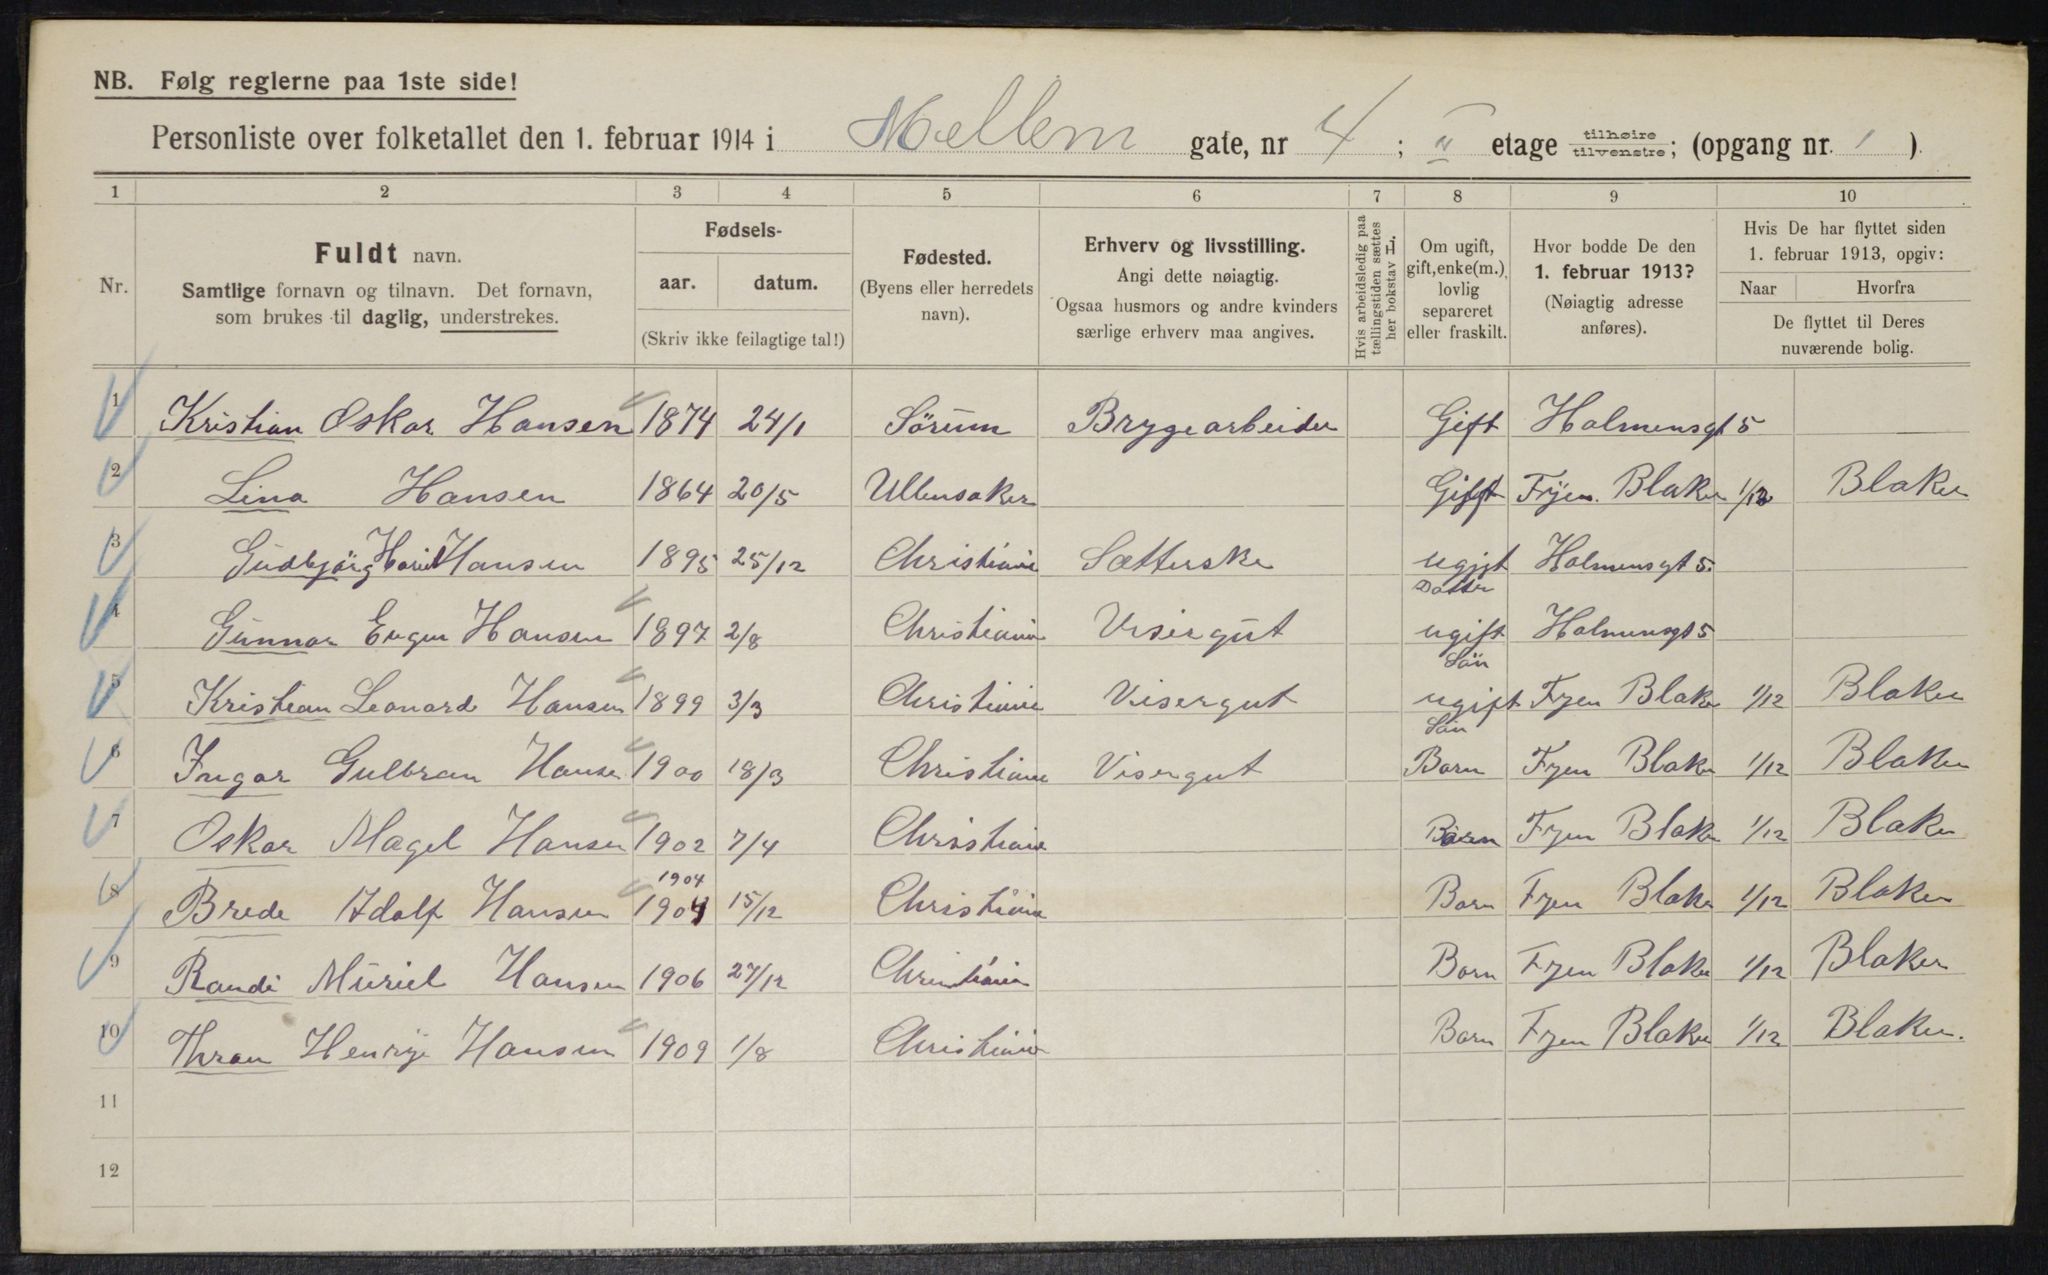 NB. Følg reglerne paa 1ste side!
Personliste over folketallet den 1. februar 1914 i Mellem gate, nr 4; II etage tilhøire tilvenstre; (opgang nr. 1).
1 2 3 4 5 6 7 8 9 10
Nr.
Fuldt navn.
Samtlige fornavn og tilnavn. Det fornavn,
som brukes til daglig, understrekes.
Fødsels-
aar. datum.
(Skriv ikke feilagtige tal!)
Fødested.
(Byens eller herredets
navn).
Erhverv og livsstilling.
Angi dette nøiagtig.
Ogsaa husmors og andre kvinders
særlige erhverv maa angives.
Hvis arbeidsledig paa
tællingstiden sættes
her bokstav L.
Om ugift,
gift, enke(m.),
lovlig
separeret
eller fraskilt.
Hvor bodde De den
1. februar 1913?
(Nøiagtig adresse
anføres).
Hvis De har flyttet siden
1. februar 1913, opgiv:
Naar Hvorfra
De flyttet til Deres
nuværende bolig.
1 Kristian Oskar Hansen 1874 24/1 Sörum Brygearbeider Gift Holmensgt 5
2 Lina Hansen 1864 20/5 Ullensaker Gift Fyen Blaker 1/12 Blaker
3 Gudbjörg Hansen 1895 25/12 Christiania Sætterske ugift Holmensgt 5.
Datter
4 Gunnar Eugen Hansen 1897 2/8 Christiania Visergut ugift Holmensgt 5
Sön
5 Kristian Leonard Hansen 1899 3/3 Christiania Visergut ugift Fyen Blaker 1/12 Blaker
Sön
6 Ingar Gulbran Hansen 1900 18/3 Christiania Visergut Barn Fyen Blaker 1/12 Blaker
7 Oskar Magel Hansen 1902 7/4 Christiania Barn Fyen Blaker 1/12 Blaker
1904
8 Brede Adolf Hansen 1904 15/12 Christiania Barn Fyen Blaker 1/12 Blaker
9 Randi Müriel Hansen 1906 27/12 Christiania Barn Fyen Blaker 1/12 Blaker
10 Thran Henry Hansen 1909 1/8 Christiania Barn Fyen Blaker 1/12 Blaker.
11
12